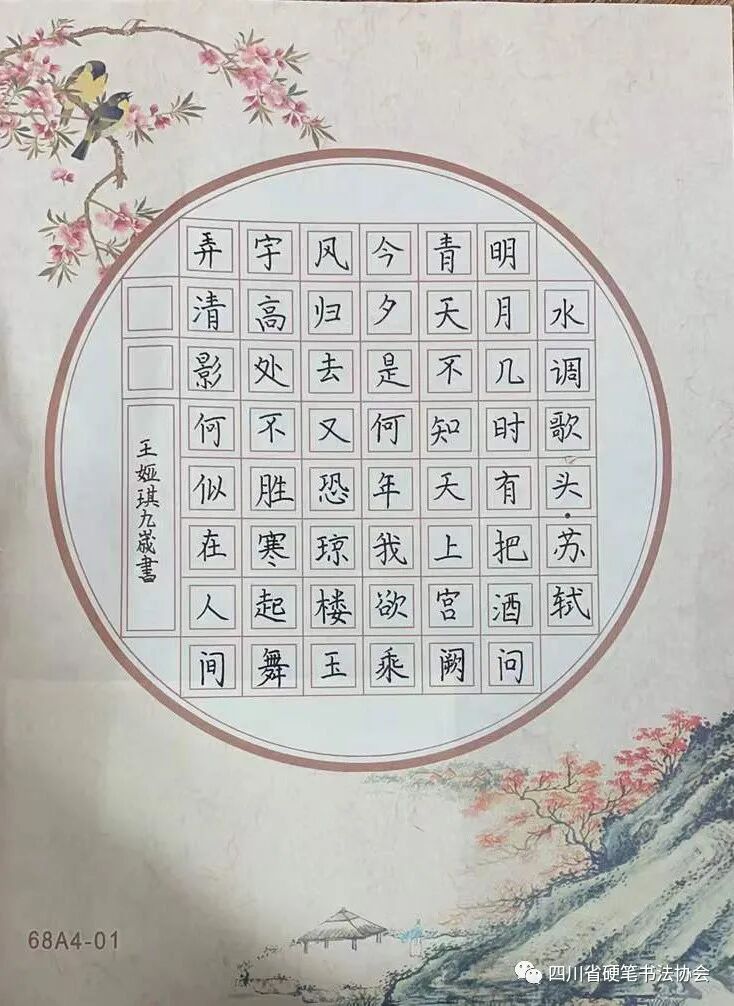 水调歌头·苏轼
明月几时有把酒问
青天不知天上宫阙
今夕是何年我欲乘
风归去又恐琼楼玉
宇高处不胜寒起舞
弄清影何似在人间
王娅琪九岁書
68A4-01
四川省硬笔书法协会